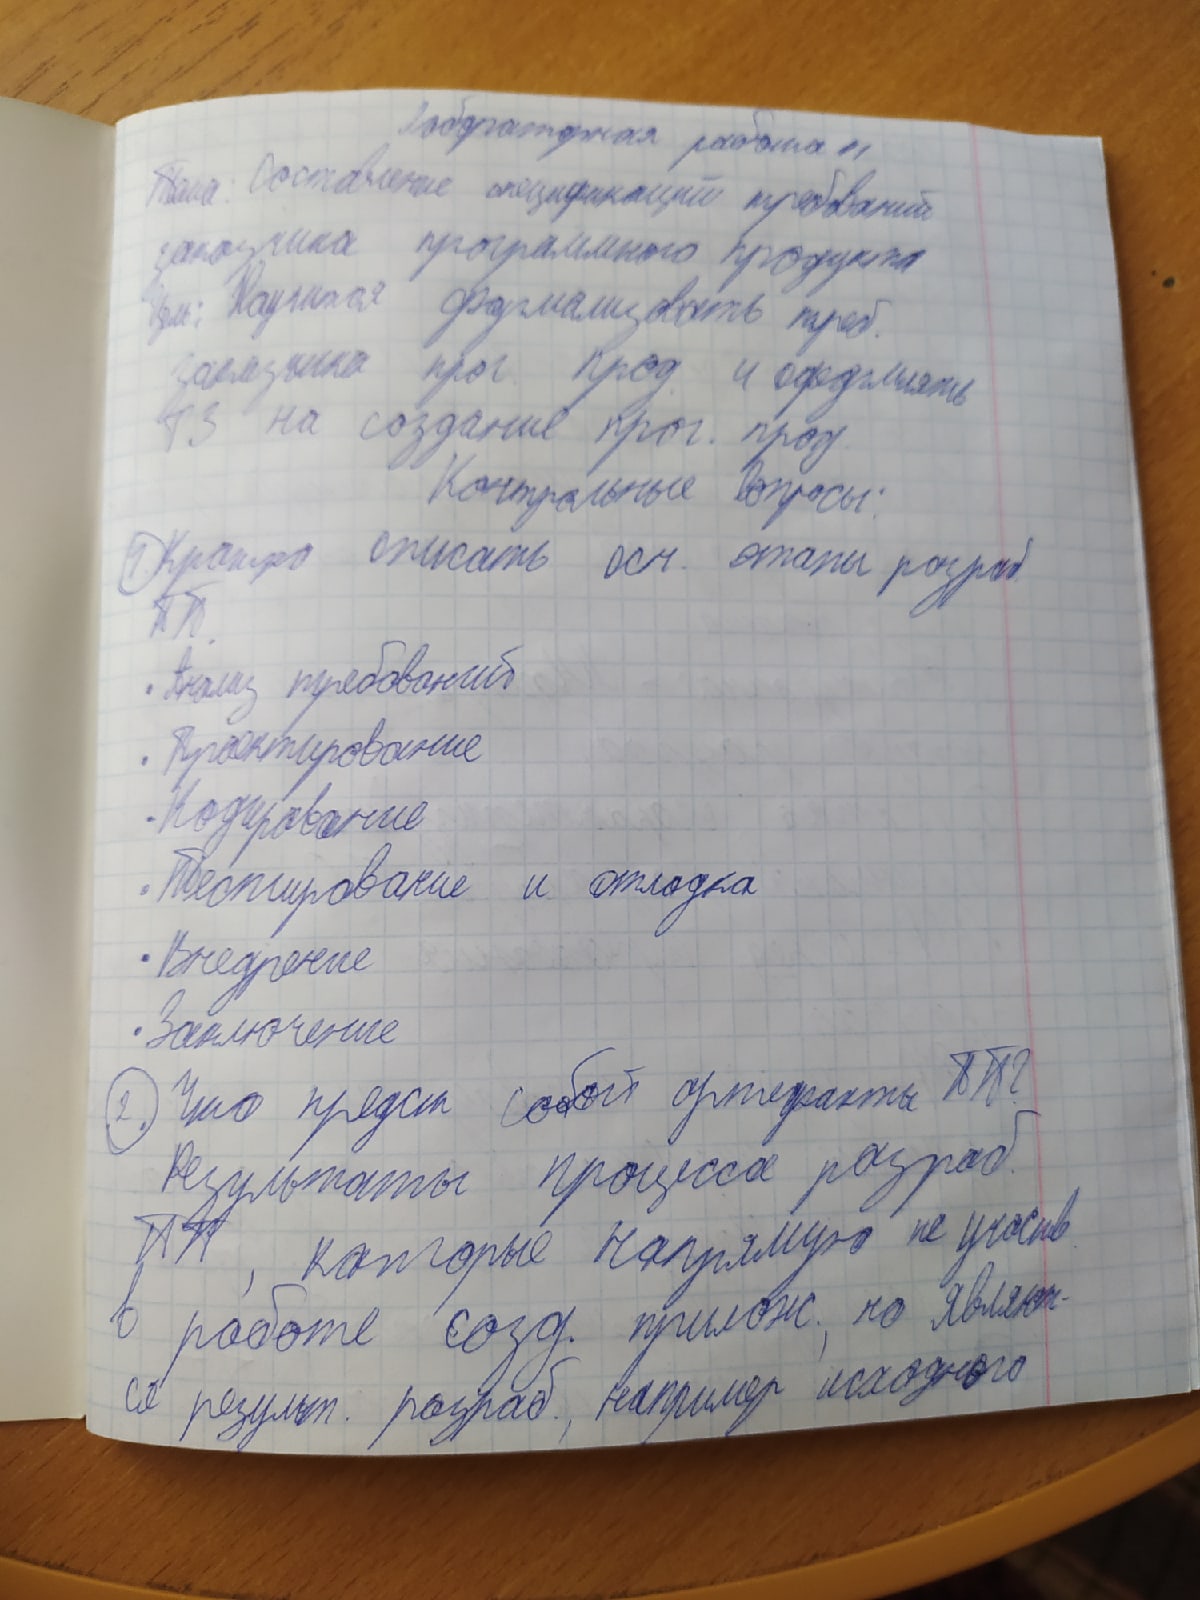 Лабораторная работа №1
Тема: Составление спецификаций требований
заказчика программного продукта
Цель: Научиться формализовать треб.
заказчика прог. прод. и оформлять
ТЗ на создание прог. прод.
Контрольные вопросы:
1) Кратко описать осн. этапы разраб.
ПП.
• Анализ требований
• Проектирование
• Кодирование
• Тестирование и отладка
• Внедрение
• Заключение
2. Что предст собой артефакты ПП?
Результаты процесса разраб.
ПП, которые напрямую не участв.
в работе созд. прилож., но являют-
ся результ. разраб., например исходного